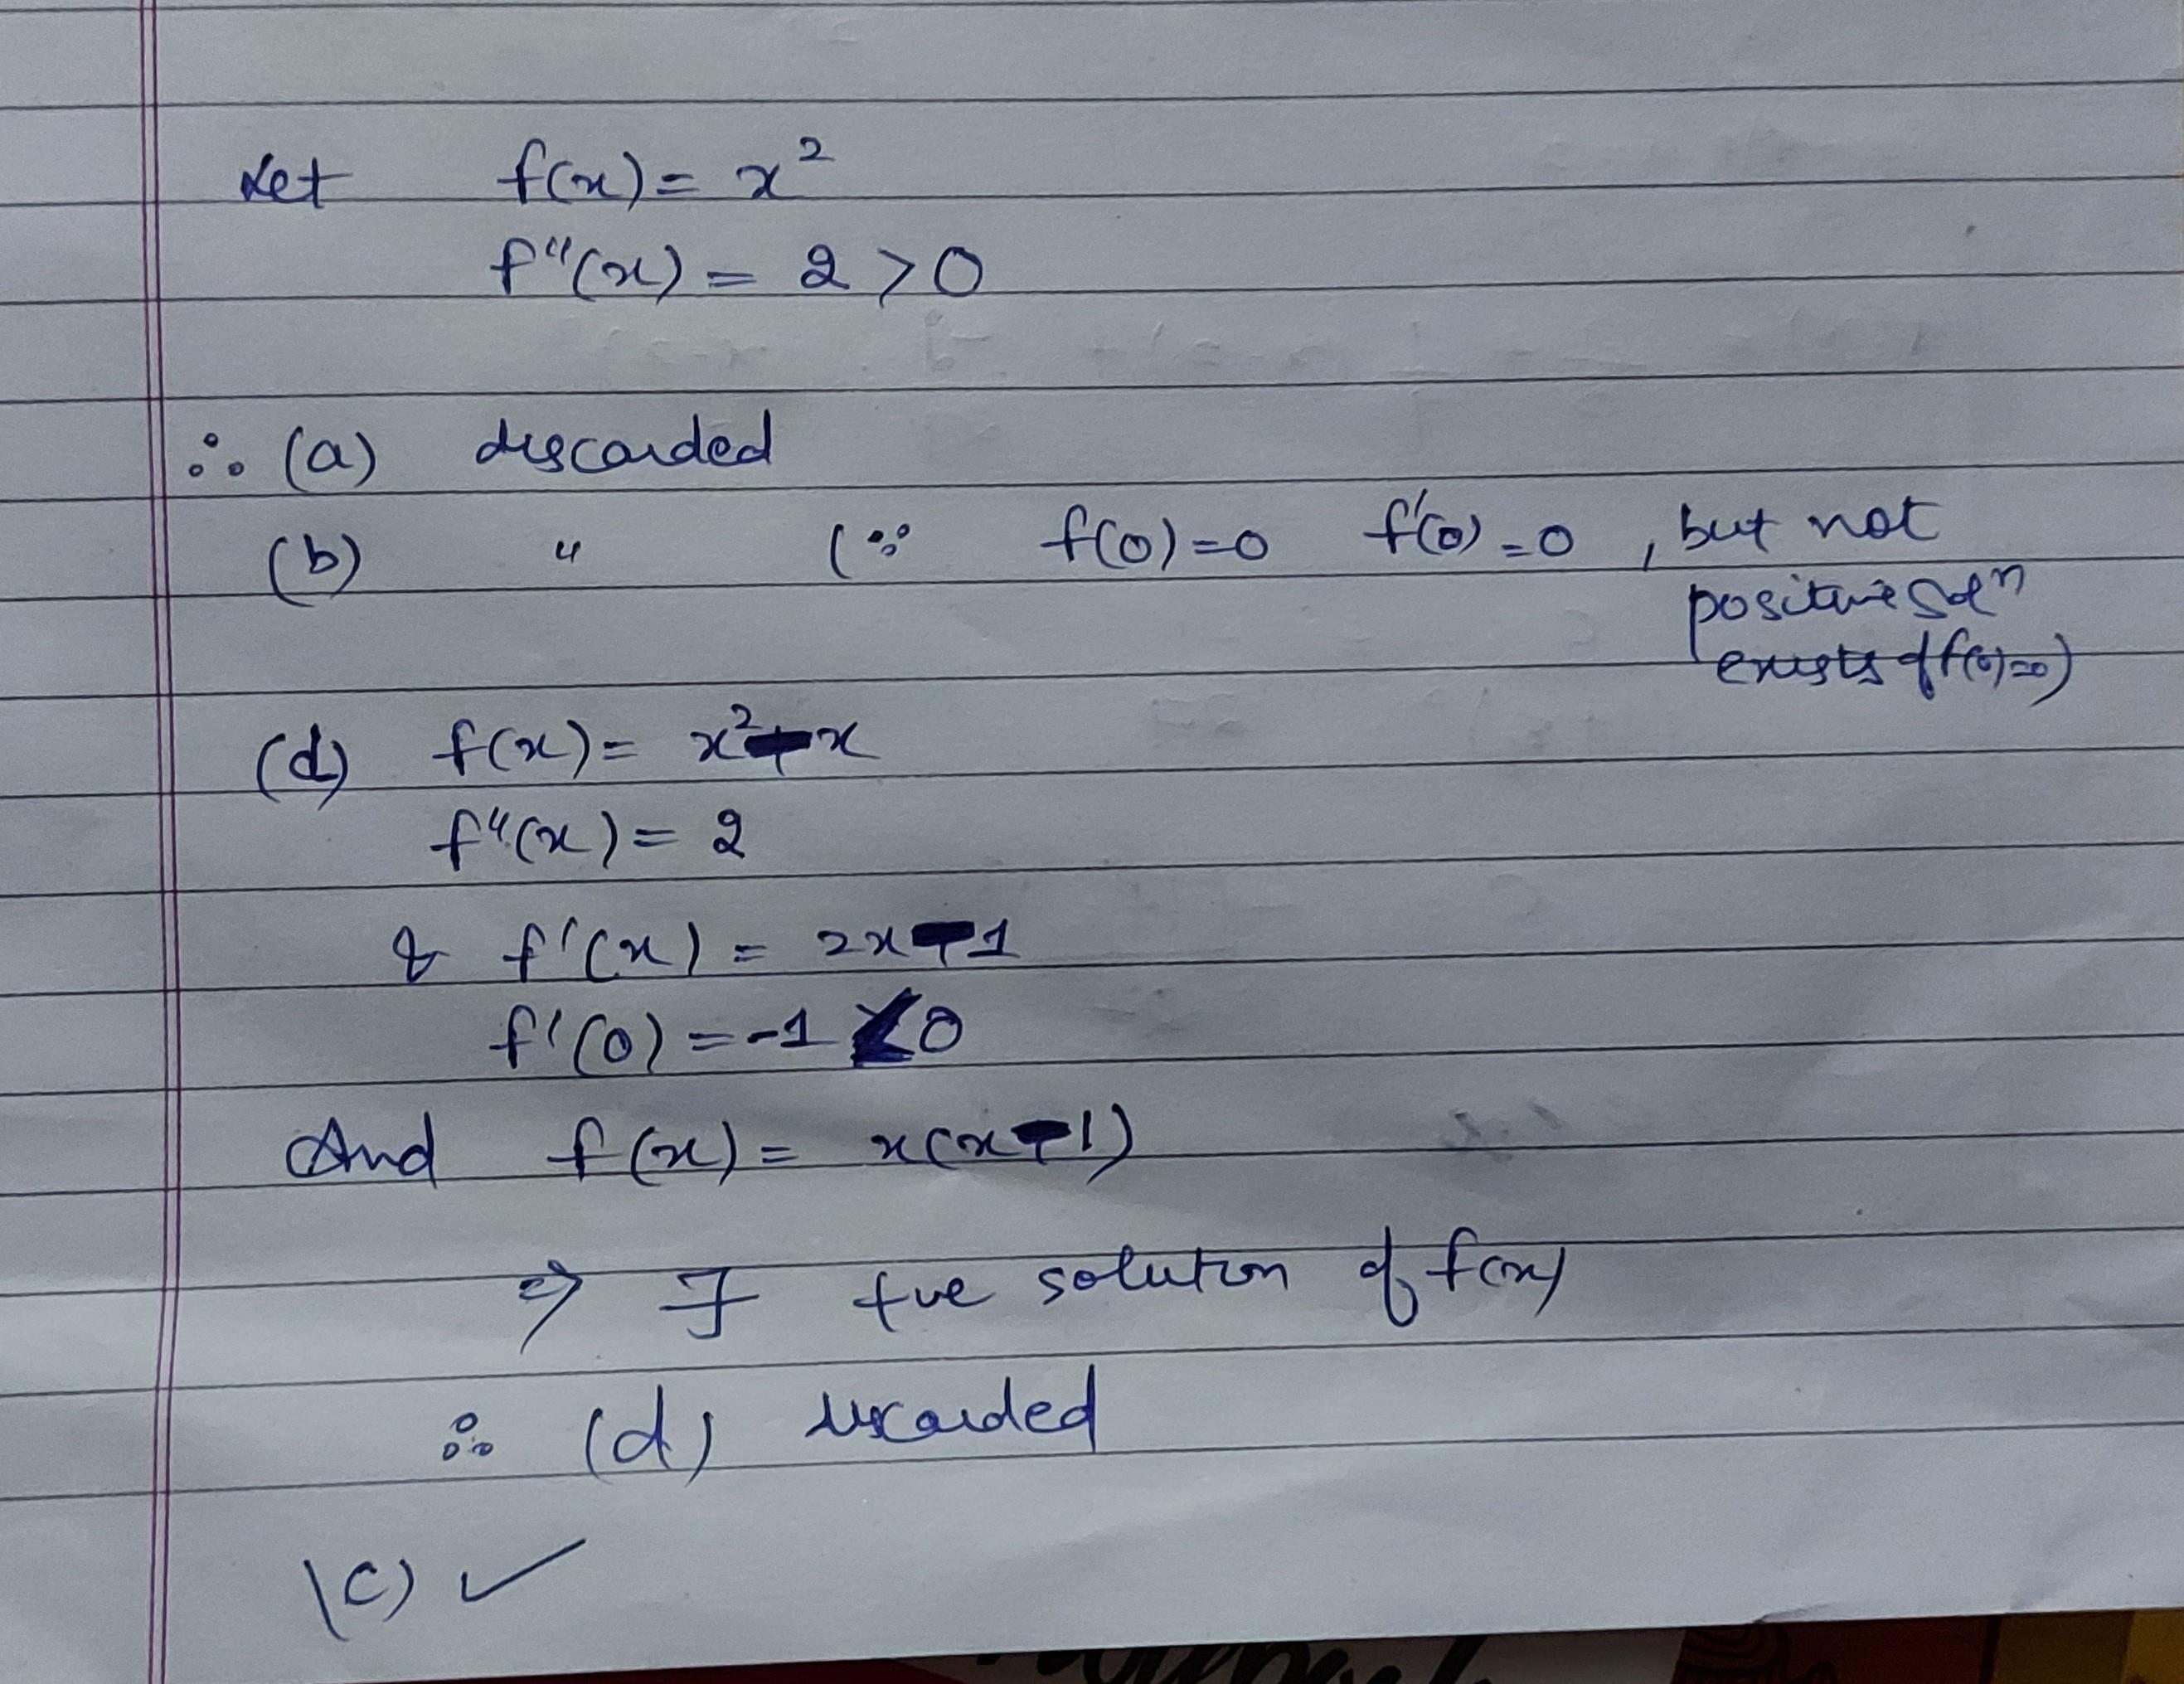 Let f(x) = x²
f"(x) = 2 > 0
∴ (a) discarded
(b) " (∵ f(0)=0 f'(0)=0, but not
positive solⁿ
exists of f(0)=0)
(d) f(x) = x²-x
f"(x) = 2
& f'(x) = 2x-1
f'(0) = -1 < 0
And f(x) = x(x-1)
⇒ ∃ +ve solution of f(x)
∴ (d) discarded
(c) ✓